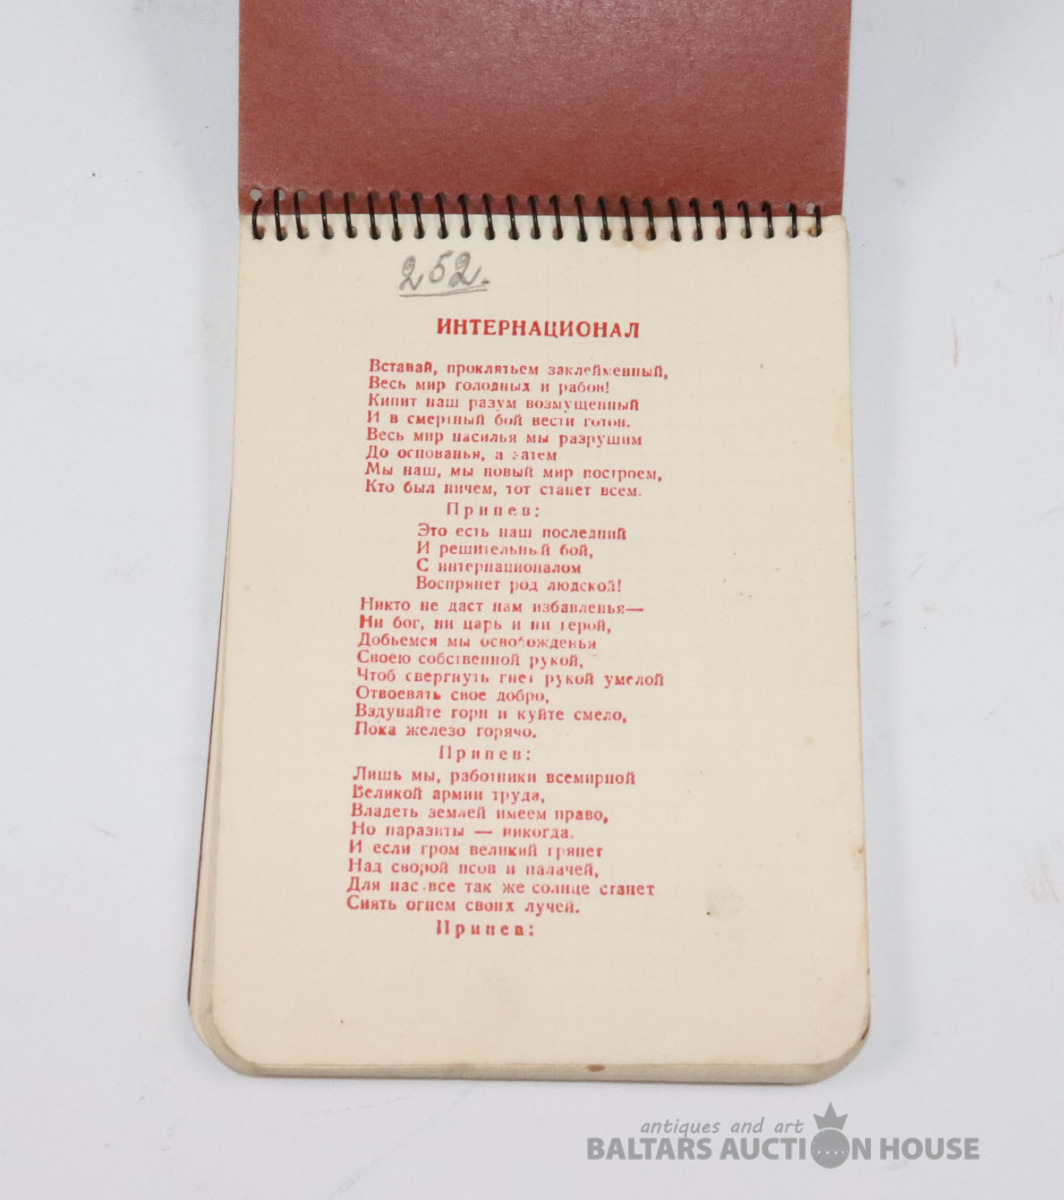 252.
ИНТЕРНАЦИОНАЛ
Вставай, проклятьем заклейменный,
Весь мир голодных и рабов!
Кипит наш разум возмущенный
И в смертный бой вести готов.
Весь мир насилья мы разрушим
До основанья, а затем
Мы наш, мы новый мир построем,
Кто был ничем, тот станет всем.
Припев:
Это есть наш последний
И решительный бой,
С интернационалом
Воспрянет род людской!
Никто не даст нам избавленья—
Ни бог, ни царь и ни герой,
Добьемся мы освобожденья
Своею собственной рукой,
Чтоб свергнуть гнет рукой умелой
Отвоевать свое добро,
Вздувайте горн и куйте смело,
Пока железо горячо.
Припев:
Лишь мы, работники всемирной
Великой армии труда,
Владеть землей имеем право,
Но паразиты — никогда.
И если гром великий грянет
Над сворой псов и палачей,
Для нас все так же солнце станет
Сиять огнем своих лучей.
Припев:
antiques and art
BALTARS AUCTION HOUSE